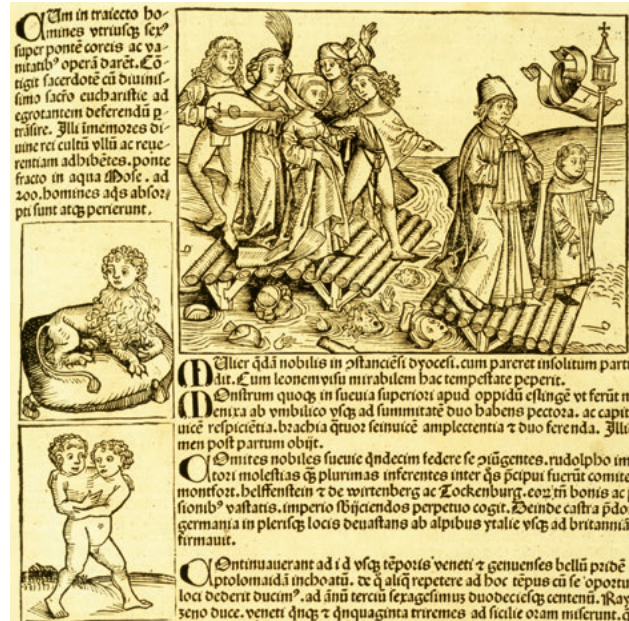 CUm in traiecto ho-
mines vtriusqʒ sexꝰ
super pontē coreis ac va-
nitatibꝰ operā darēt. Cō-
tigit sacerdotē cū diuinis-
simo sacro eucharistie ad
egrotantem deferendū ꝑ-
trāsire. Illi īmemores di-
uine rei cultū vllū ac reue-
rentiam adhibētes. ponte
fracto in aqua Mose. ad
200. homines aq̄s absor-
pti sunt atqʒ perierunt.
MUlier q̄dā nobilis in ꝯstanciēsi dyocesi. cum pareret insolitum part
dit. Cum leonem visu mirabilem hac tempestate peperit.
MOnstrum quoqʒ in sueuia superiori apud oppidū eslingē vt ferūt
enixa ab vmbilico vsqʒ ad summitatē duo habens pectora. ac capit
uicē respiciētia. brachia q̄tuor seinuicē amplectentia ⁊ duo ferenda. Illi
men post partum obijt.
COmites nobiles sueuie q̄ndecim federe se ꝯiūgentes. rudolpho im
tori molestias qʒ plurimas inferentes inter q̄s p̄cipui fuerūt comite
montfort. helffenstein ⁊ de wirtenberg ac Tockenburg. eorꝫ tn̄ bonis ac
sionibꝰ vastatis. imperio sb̄ijciendos perpetuo cogit. Deinde castra p̄do
germania in plerisqʒ locis deuastans ab alpibus ytalie vsqʒ ad britanniā
firmauit.
COntinuauerant ad id vsqʒ tēporis veneti ⁊ genuenses bellū pridē
Aptolomaidā inchoatū. de q̄ aliq̄ repetere ad hoc tēpus cū se oportu
loci dederit ducimꝰ. ad ānū terciū sexagesimuʒ duodeciesqʒ centenū. Ray
zeno duce. veneti q̄nqʒ ⁊ q̄nquaginta triremes ad sicilie oram miserunt.